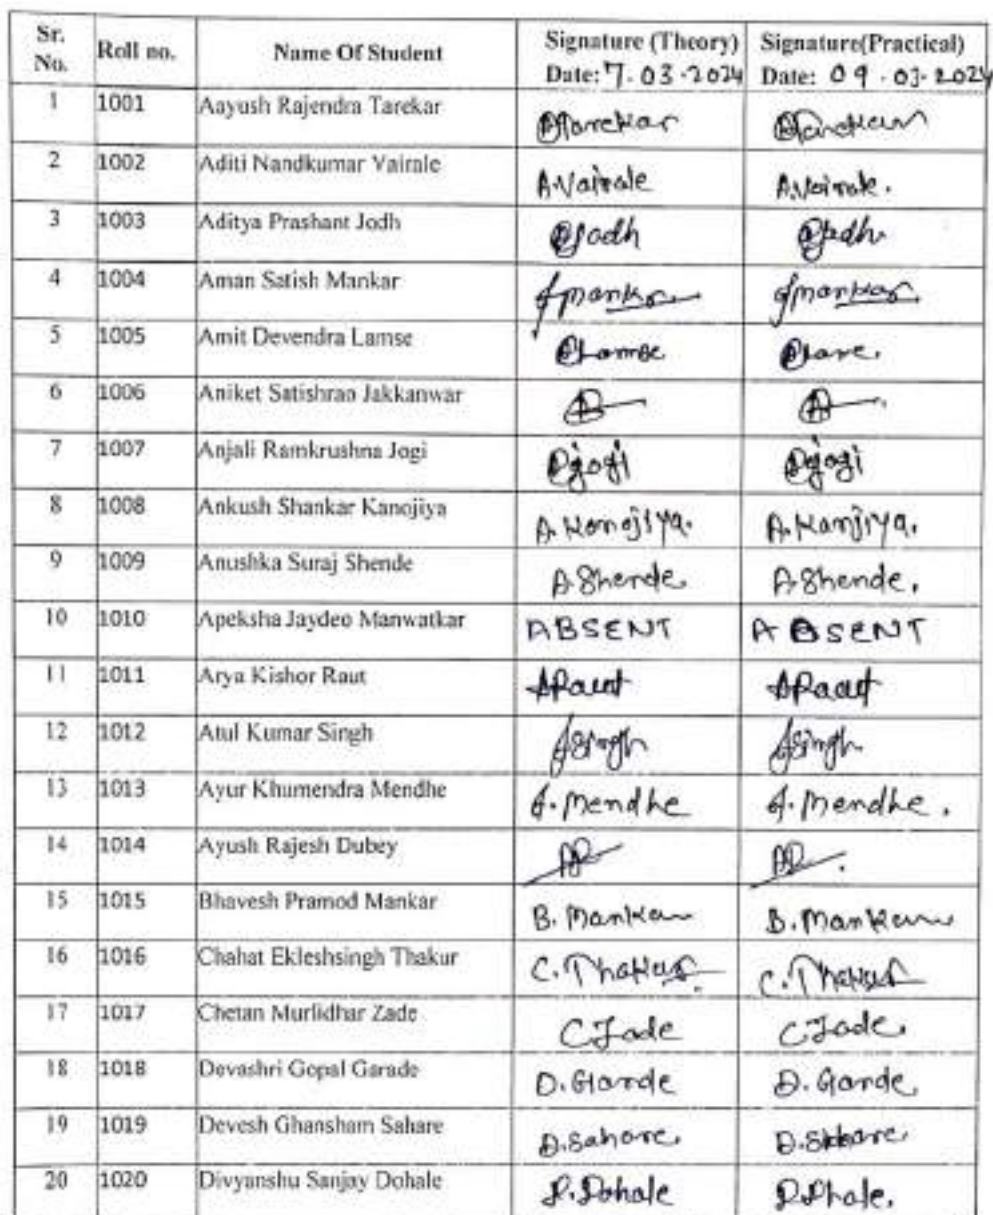 Sr. No. Roll no. Name Of Student Signature (Theory) Date: 7-03-2024 Signature(Practical) Date: 09-03-2024
1 1001 Aayush Rajendra Tarekar
2 1002 Aditi Nandkumar Vairale A.Vairale A.Vairale.
3 1003 Aditya Prashant Jodh Jodh Jodh
4 1004 Aman Satish Mankar Mankar Mankar
5 1005 Amit Devendra Lamse Lamse
6 1006 Aniket Satishrao Jakkanwar
7 1007 Anjali Ramkrushna Jogi Jogi Jogi
8 1008 Ankush Shankar Kanojiya A. Konojiya. A. Kanjiya.
9 1009 Anushka Suraj Shende A.Shende. A.Shende.
10 1010 Apeksha Jaydeo Manwatkar ABSENT ABSENT
11 1011 Arya Kishor Raut ARaut ARaut
12 1012 Atul Kumar Singh ASingh ASingh
13 1013 Ayur Khumendra Mendhe A. Mendhe A. Mendhe.
14 1014 Ayush Rajesh Dubey
15 1015 Bhavesh Pramod Mankar B. Mankar B. Mankar
16 1016 Chahat Ekleshsingh Thakur C. Thakur C. Thakur
17 1017 Chetan Murlidhar Zade C Zade C Zade.
18 1018 Devashri Gopal Garade D. Garde D. Garde.
19 1019 Devesh Ghansham Sahare D. Sahare. D.
20 1020 Divyanshu Sanjay Dohale D. Dohale D.Dhale.